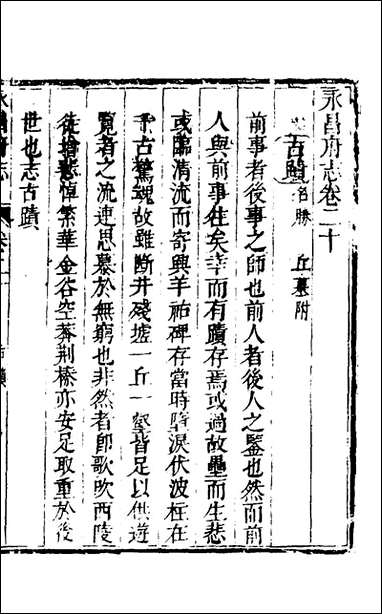 永昌府志卷二十
古蹟名勝 丘墓附
前事者後事之師也前人者後人之鑒也然而前
人與前事徃矣幸而有蹟存焉或過故壘而生悲
或臨清流而寄興羊祐碑存當時墮淚伏波柱在
千古驚魂故雖斷井殘墟一丘一壑皆足以供遊
覽者之流連思慕於無窮也非然者即歌吹西陵
徒搶悲悼繁華金谷空莽荆榛亦安足取重於後
世也志古蹟
永昌府志